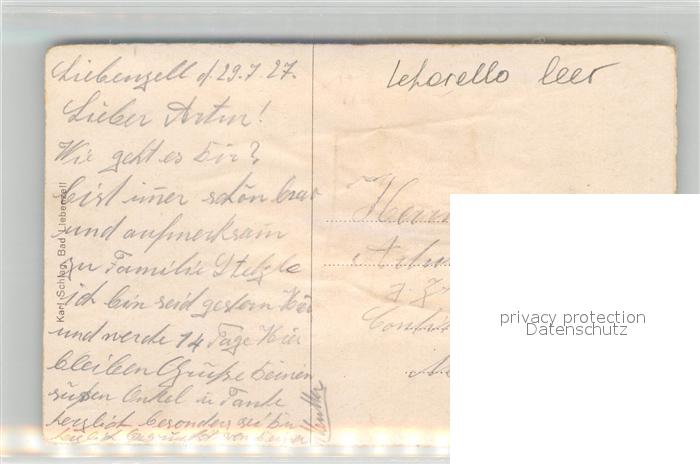 Liebenzell d. 29.7.27.
Lieber Artur!
Wie geht es Dir?
bist im̄er schön brav
und aufmerksam
zu Familie Stelzle
ich bin seid gestern Hier
und werde 14 Tage Hier
bleiben Grüße Deinen
süßen Onkel u Tante
herzlich besonders sei Du
herzlich von Deiner
Mutter
Karl Schlag, Bad Liebenzell
Leporello leer
Herrn
privacy protection
Datenschutz